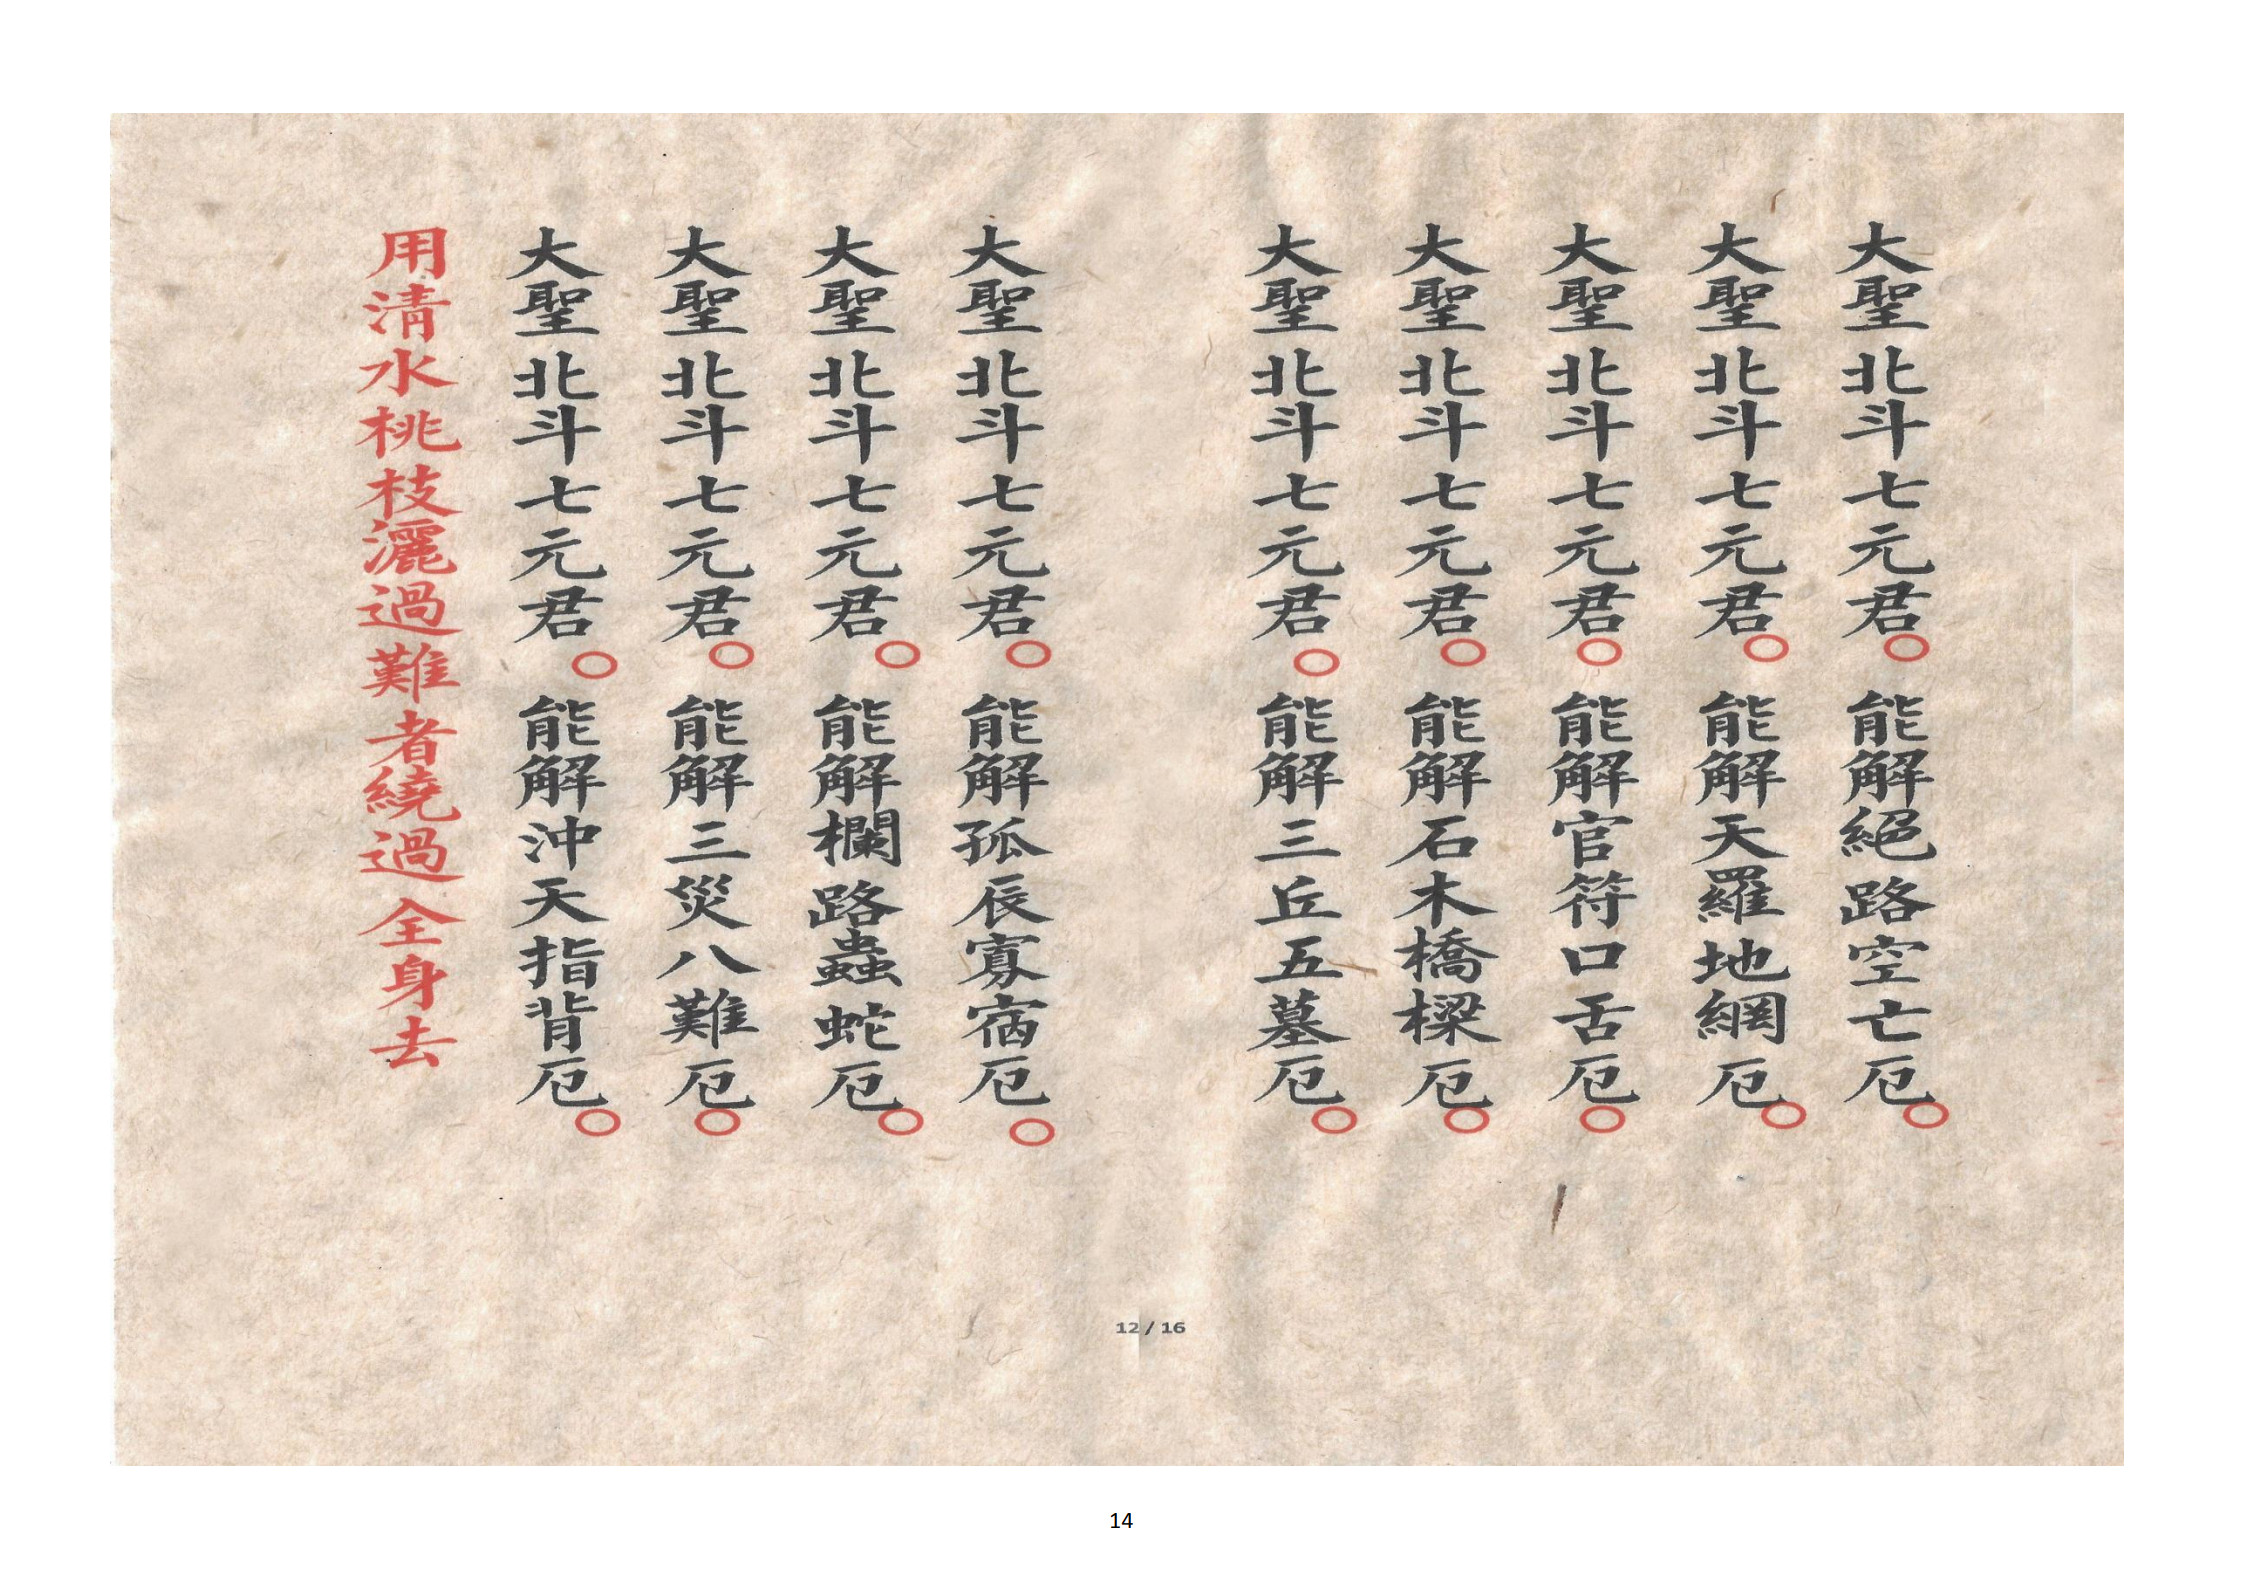 大聖北斗七元君○能解絕路空亡厄○
大聖北斗七元君○能解天羅地網厄○
大聖北斗七元君○能解官符口舌厄○
大聖北斗七元君○能解石木橋樑厄○
大聖北斗七元君○能解三丘五墓厄○
大聖北斗七元君○能解孤辰寡宿厄○
大聖北斗七元君○能解欄路蟲蛇厄○
大聖北斗七元君○能解三災八難厄○
大聖北斗七元君○能解沖天指背厄○
用清水桃枝灑過難者繞過全身去
12 / 16
14